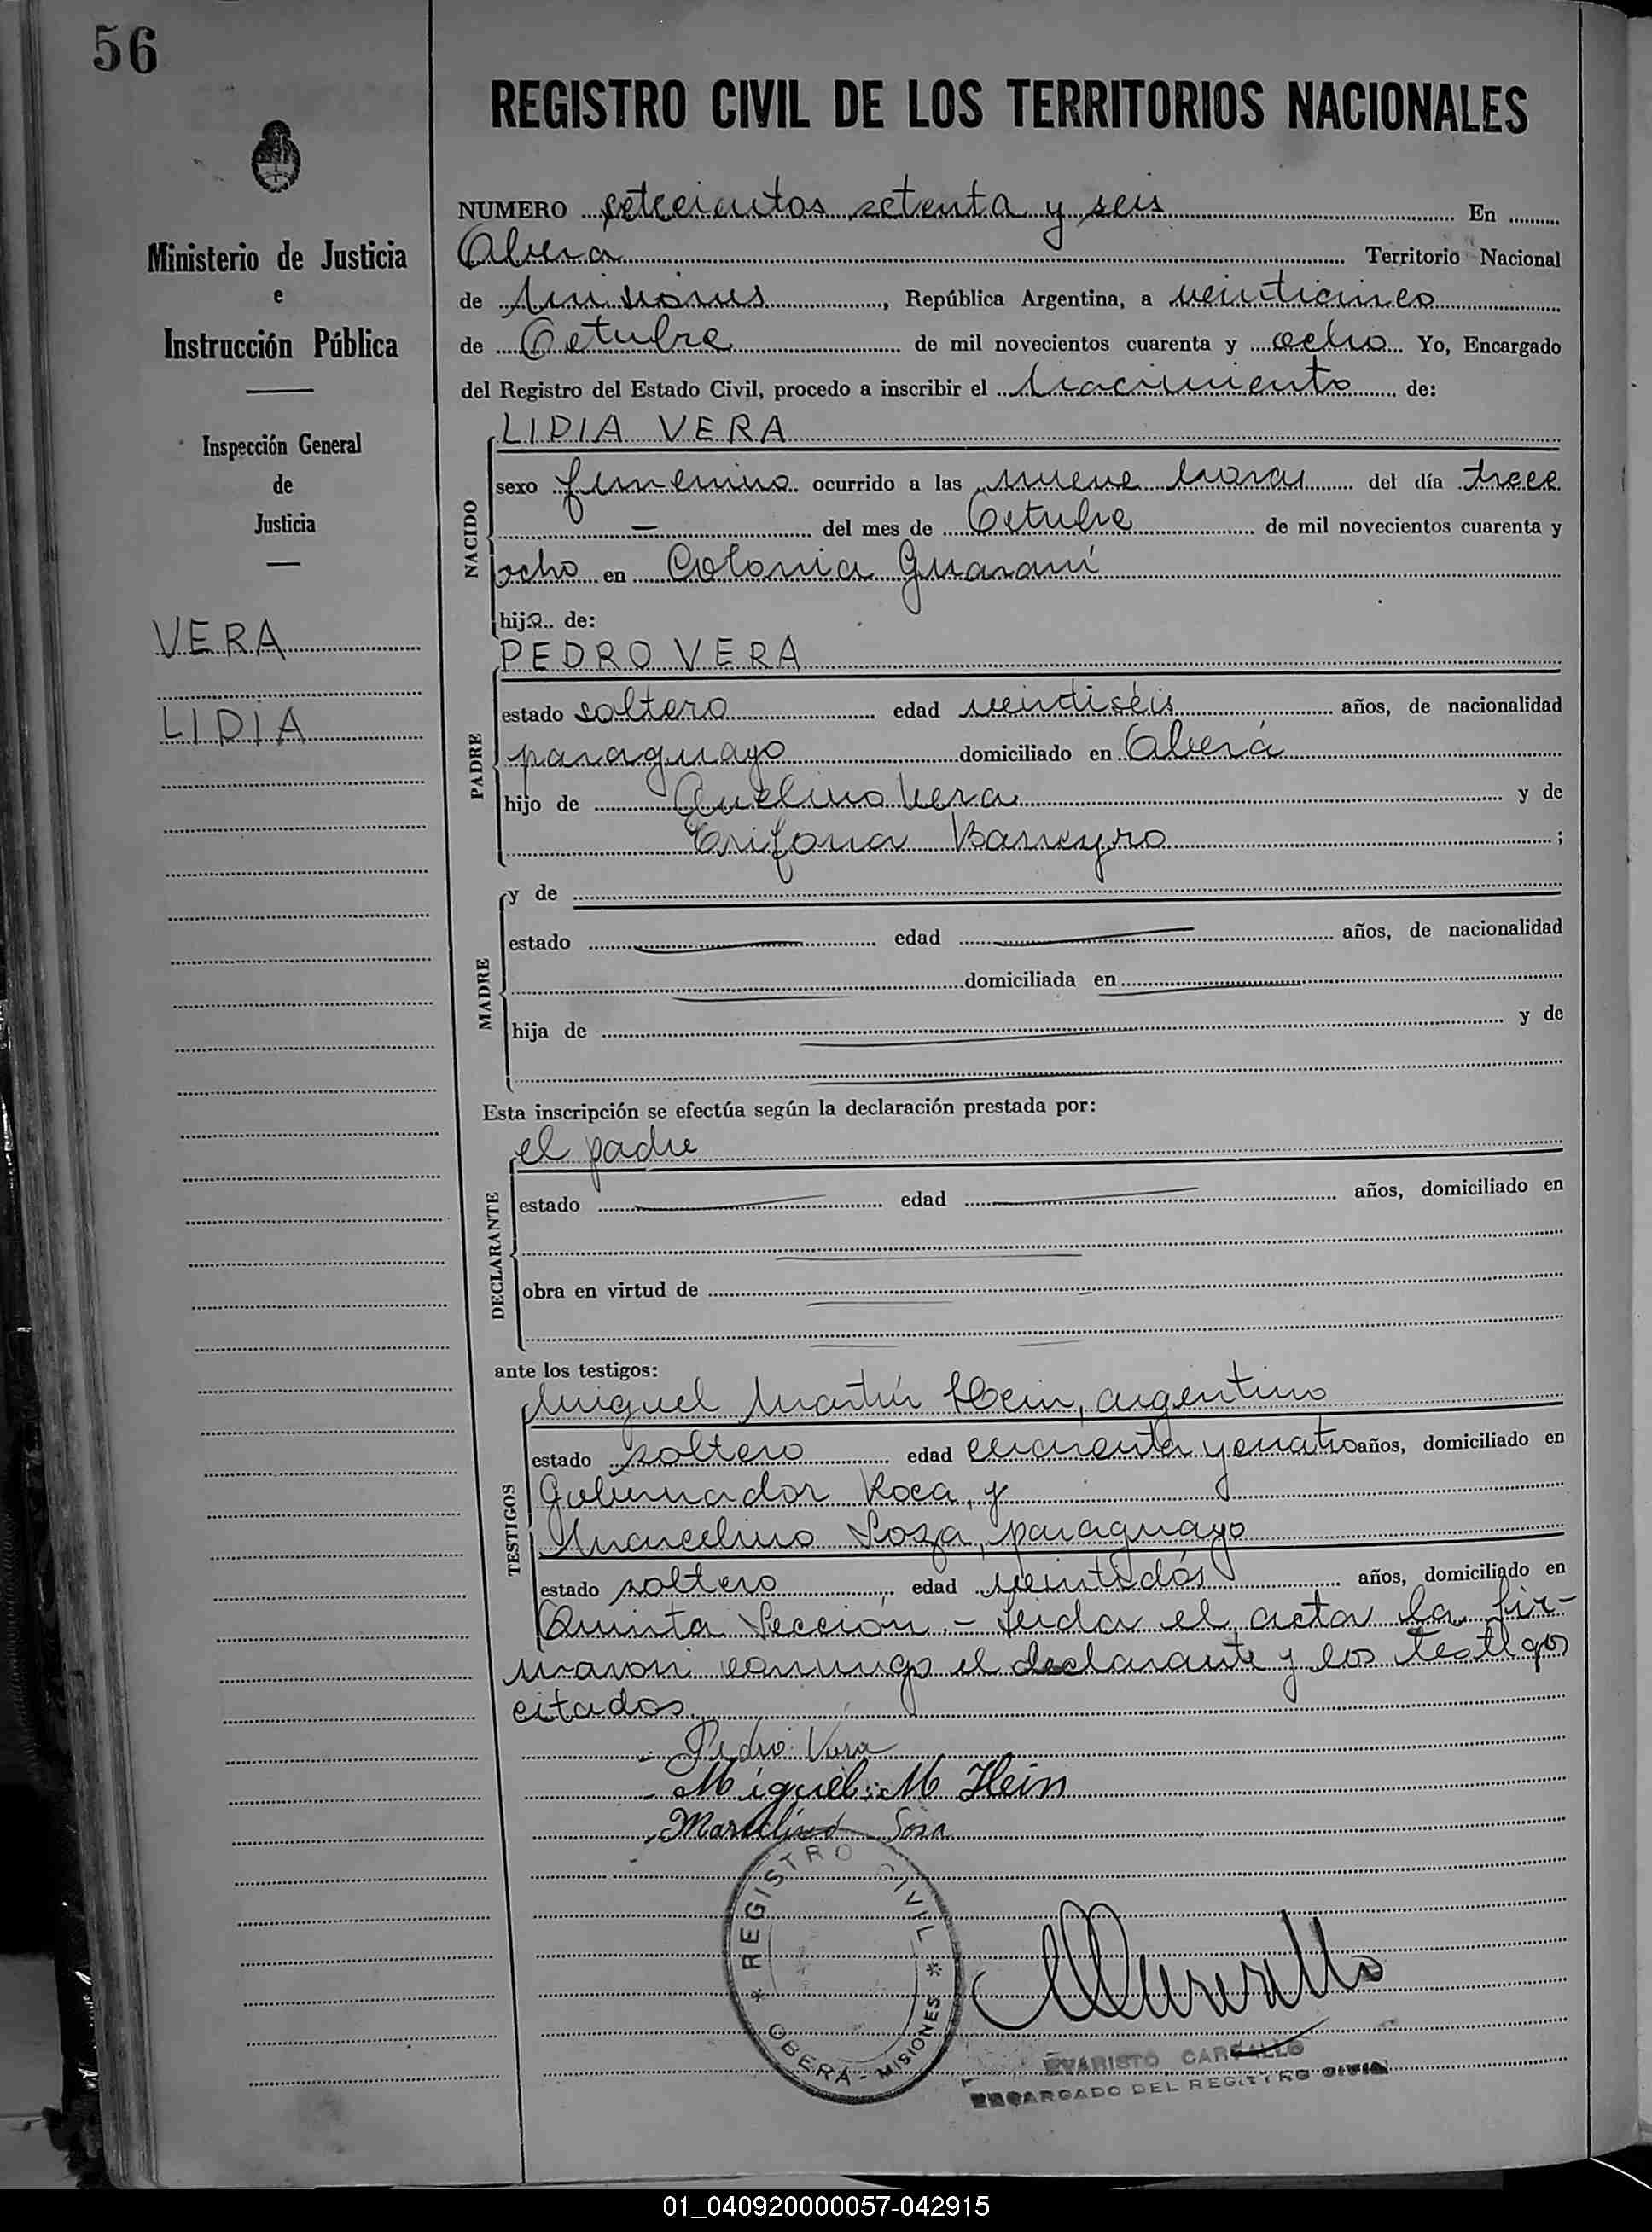 56
REGISTRO CIVIL DE LOS TERRITORIOS NACIONALES
Ministerio de Justicia
e
Instrucción Pública
Inspección General
de
Justicia
VERA
LIDIA
NUMERO setecientos setenta y seis En
Oberá Territorio Nacional
de Misiones, República Argentina, a veinticinco
de Octubre de mil novecientos cuarenta y ocho Yo, Encargado
del Registro del Estado Civil, procedo a inscribir el nacimiento de:
NACIDO
LIDIA VERA
sexo femenino ocurrido a las nueve horas del día trece
— del mes de Octubre de mil novecientos cuarenta y
ocho en Colonia Guaraní
hija de:
PADRE
PEDRO VERA
estado soltero edad veintiséis años, de nacionalidad
paraguayo domiciliado en Oberá
hijo de Avelino Vera y de
Barreyro ;
MADRE
y de
estado edad años, de nacionalidad
domiciliada en
hija de y de
Esta inscripción se efectúa según la declaración prestada por:
DECLARANTE
el padre
estado edad años, domiciliado en
obra en virtud de
ante los testigos:
TESTIGOS
Miguel Martín Hein, argentino
estado soltero edad cuarenta y cuatro años, domiciliado en
Gobernador Roca, y
Marcelino Sosa, paraguayo
estado soltero edad veintidós años, domiciliado en
Quinta Sección.- Leida el acta la fir-
maron conmigo el declarante y los testigos
citados.
Pedro Vera
Miguel M Hein
Marcelino Sosa
* REGISTRO CIVIL *
OBERÁ - MISIONES
EVARISTO CARVALLO
ENCARGADO DEL REGISTRO CIVIL
01_040920000057-042915